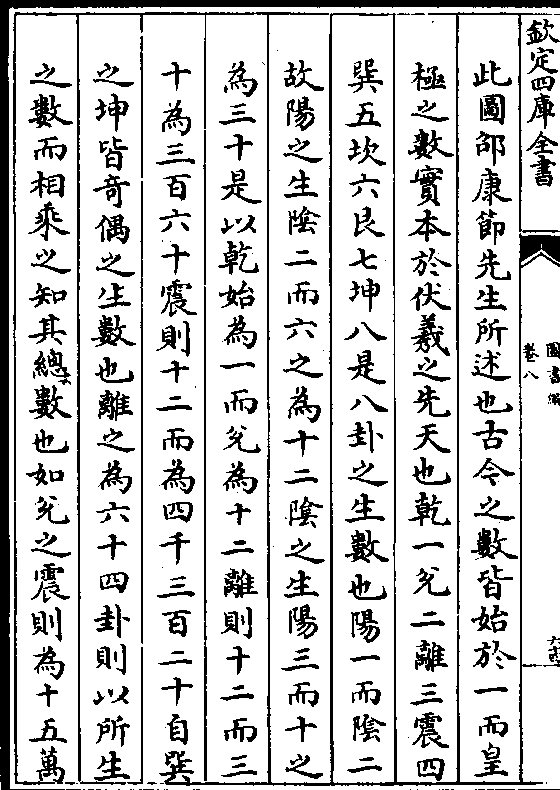 欽定四庫全書
圖書編
卷八
此圖邵康節先生所述也古今之數皆始於一而皇
極之數實本於伏羲之先天也乾一兌二離三震四
巽五坎六艮七坤八是八卦之生數也陽一而陰二
故陽之生陰二而六之為十二陰之生陽三而十之
為三十是以乾始為一而兌為十二離則十二而三
十為三百六十震則十二而為四千三百二十自巽
之坤皆奇偶之生數也離之為六十四卦則以所生
之數而相乘之知其總數也如兌之震則為十五萬